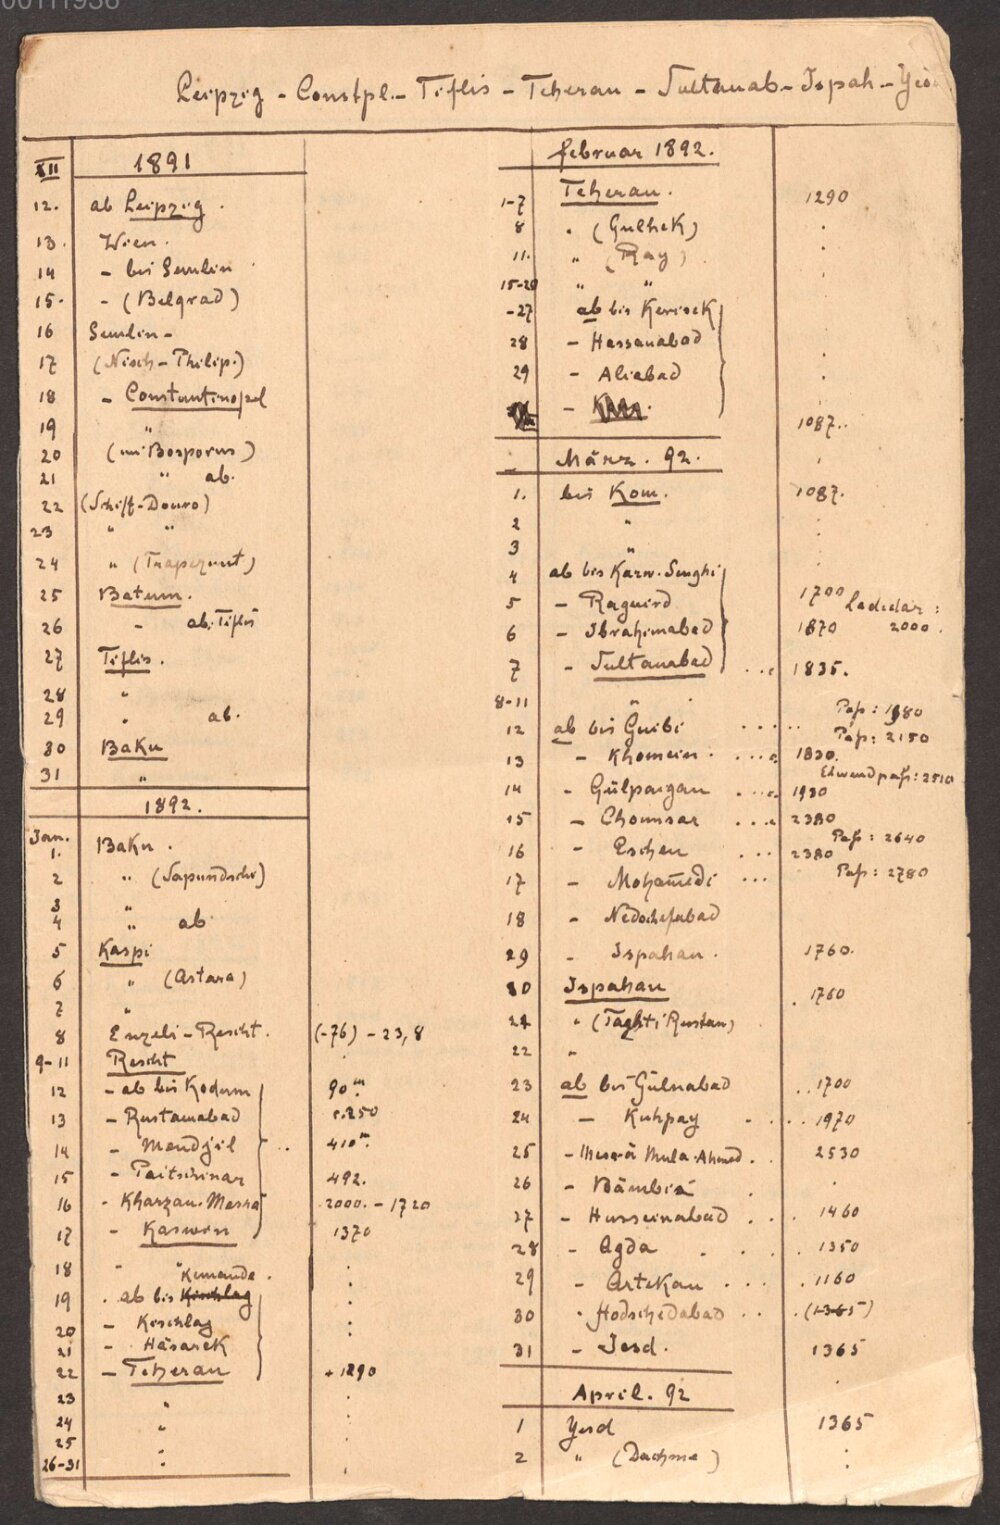 00111936
Leipzig - Constpl. - Tiflis - Teheran - Sultanab - Ispah -
XII 1891
12. ab Leipzig.
13. Wien.
14 - bis Semlin
15. - (Belgrad)
16 Semlin -
17 (Nisch - Philip.)
18 - Constantinopel
19 "
20 (im Bosporus)
21 " ab.
22 (Schiff - Douro)
23 " "
24 " (Trapezunt)
25 Batum.
26 - ab. Tiflis
27 Tiflis.
28 "
29 " ab.
30 Baku
31 "
1892.
Jan.
1. Baku.
2 " (Sapundschi)
3 "
4 " ab
5 Kaspi
6 " (Astara)
7 "
8 Enzeli - Rescht. (-76) - 23,8
9-11 Rescht
12 - ab bis Kodum 90m
13 - Rustamabad c. 250
14 - Mendjil .. 410m.
15 - Paitschinar 492.
16 - Kharzan - Masra 2000. - 1720
17 - Kaswin 1370
18 " "
Kemande.
19 . ab bis Kischlag
20 - Kischlag
21 - Häsarek
22 - Teheran + 1290
23 "
24 "
25 "
26-31 :
Februar 1892.
1-7 Teheran. 1290
8 " (Gulhek)
11. " (Ray)
15-20 " "
-27 ab bis Kerisek
28 - Hassanabad
29 - Aliabad
- 1087..
März. 92.
1. bis Kom. 1087.
2 "
3 "
4 ab bis Karw. Senghi
5 - Raguird 1700 Ladidar:
6 - Ibrahimabad 1870 2000.
7 - Sultanabad ... 1835.
8-11 " Paß: 1980
12 ab bis Guibi ..... Paß: 2150
13 - Khomein .... 1830.
Elwendpaß: 2510
14 - Gülpaigan .... 1930
15 - Chounsar ... 2380
Paß: 2640
16 - Eschen ... 2380
Paß: 2780
17 - Mohamedi ...
18 - Nedschefabad
29 - Ispahan. 1760.
20 Ispahan . 1760
21 " (Taght i Rustan)
22 "
23 ab bis Gülnabad .. 1700
24 - Kuhpay .... 1970
25 - Mula Ahmed.. 2530
26 - Bämbis .
27 - Husseinabad ... 1460
28 - Agda .... 1350
29 - Artekan .... 1160
30 . Hodschedabad .. . (1365)
31 - Jesd. 1365
April. 92
1 Yesd 1365
2 " (Dachme)